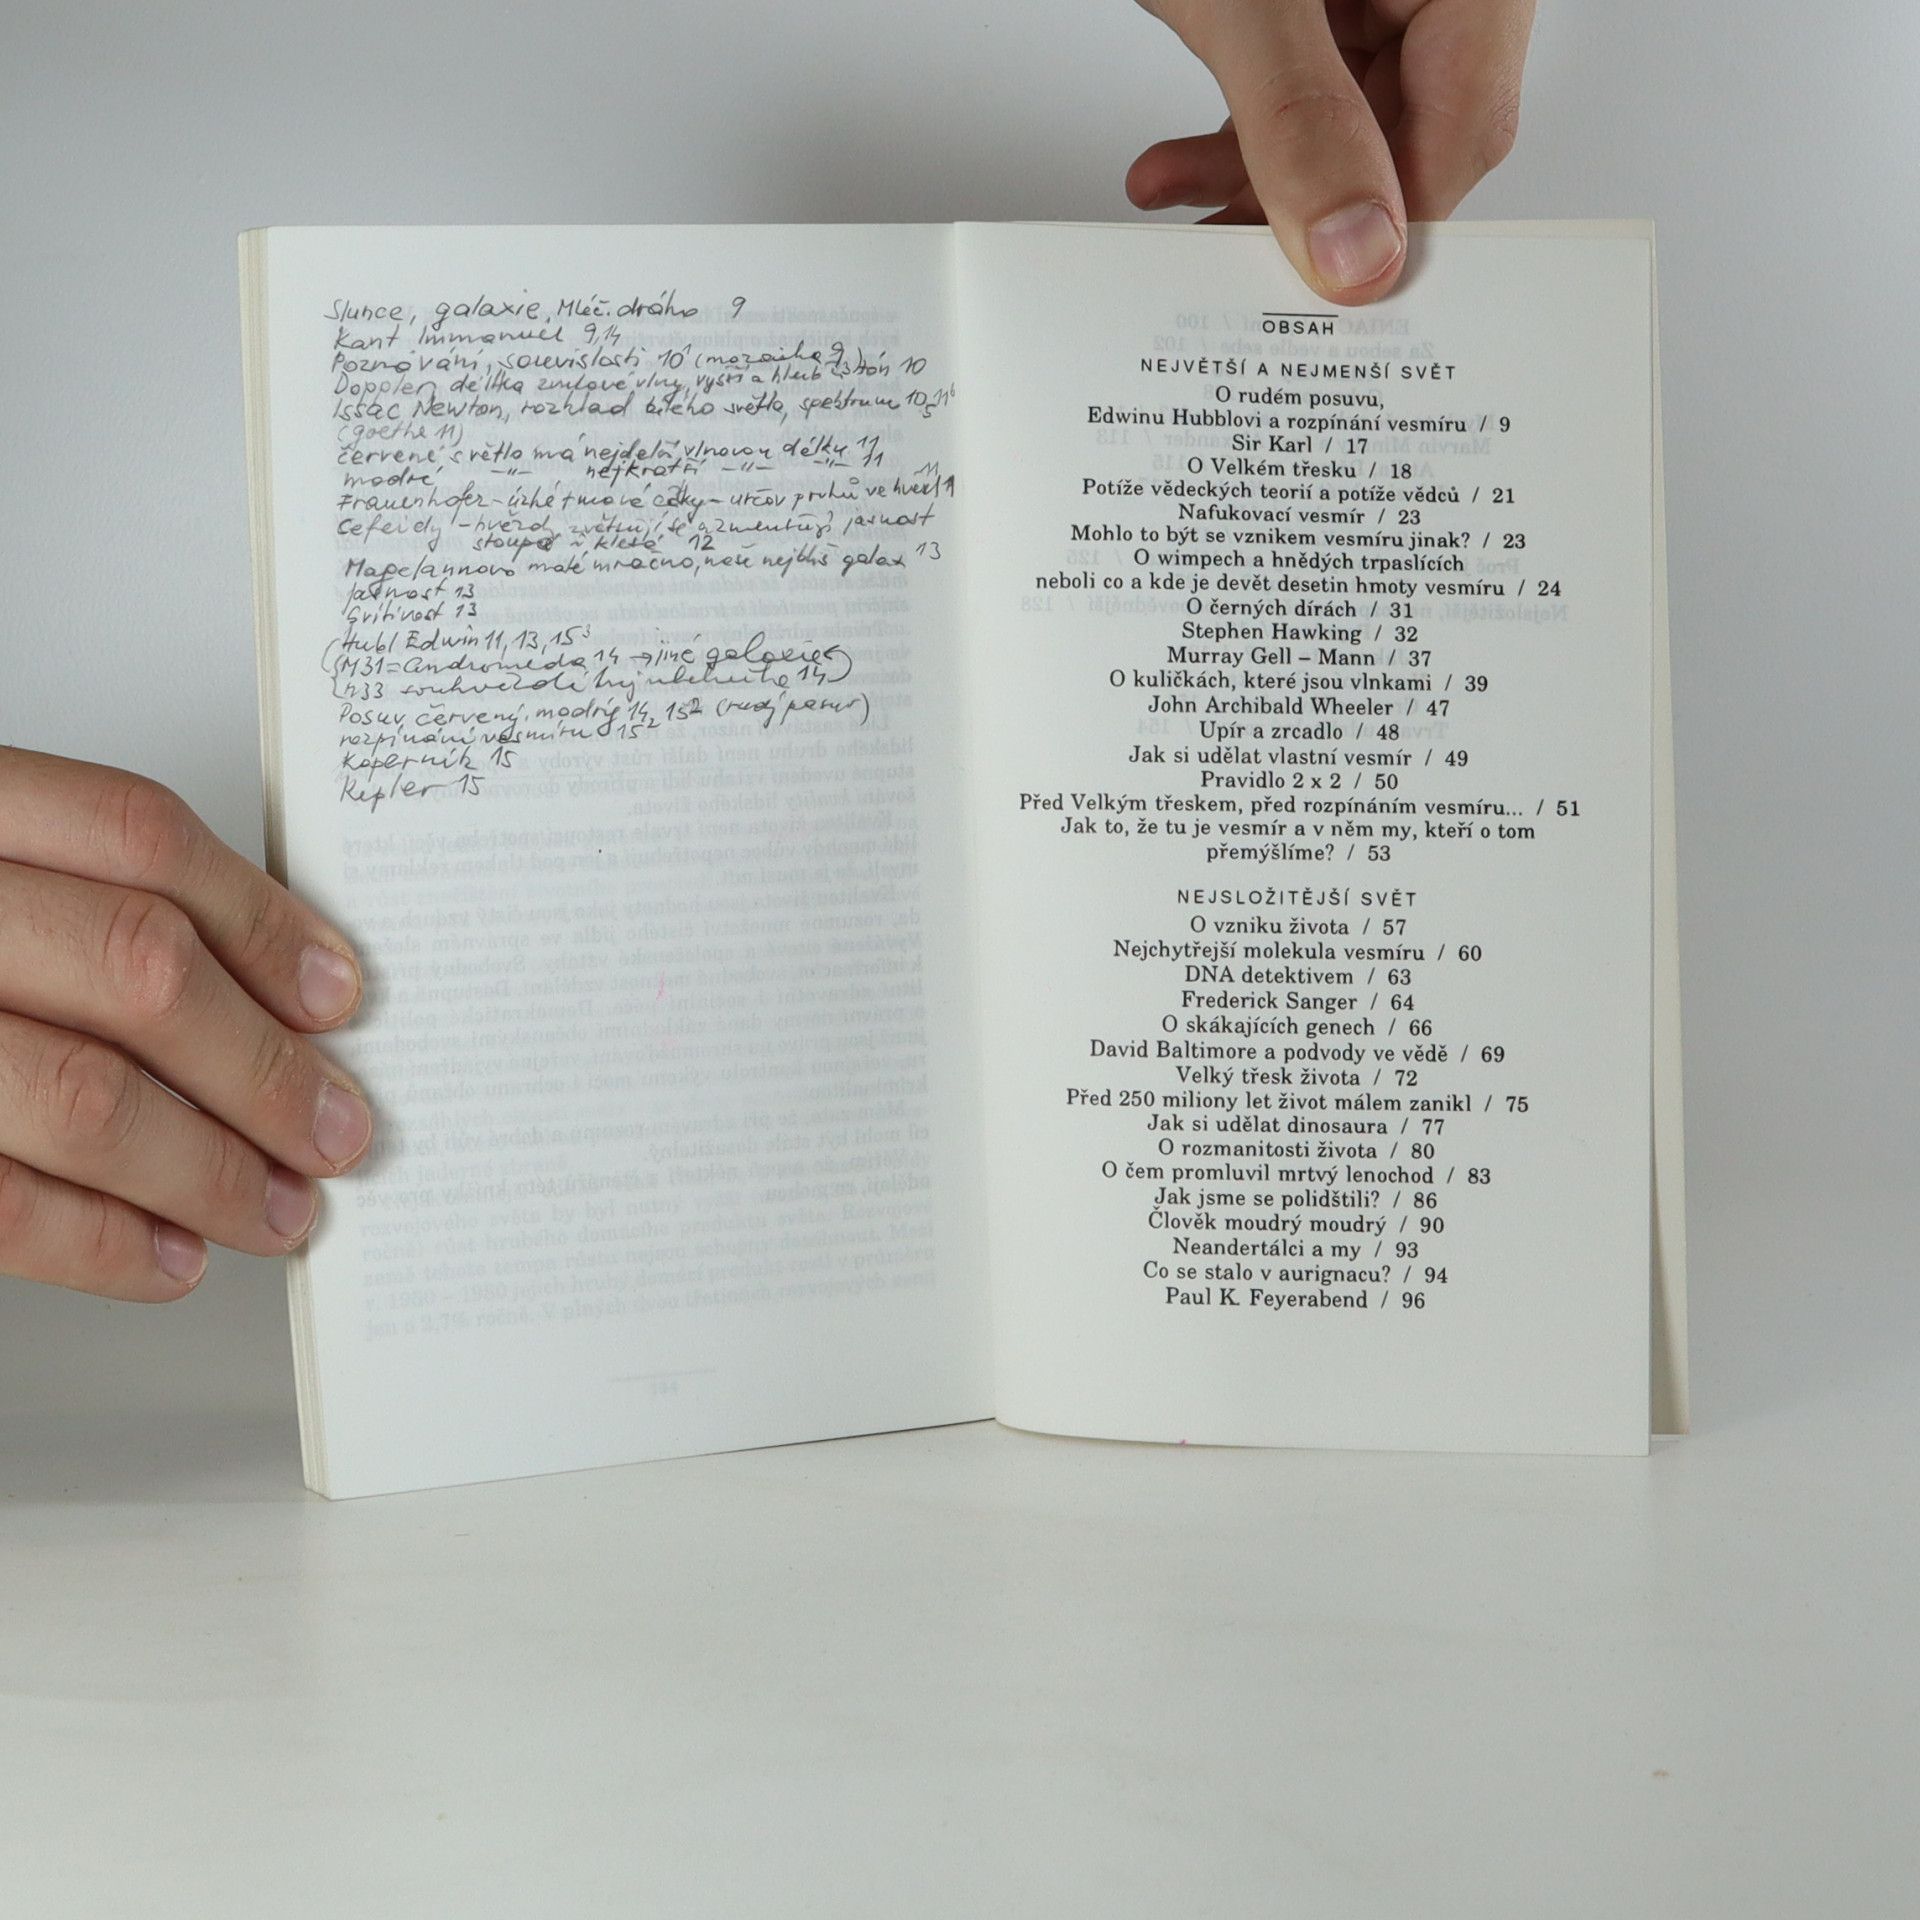 Slunce, galaxie, Mléč. dráha 9
Kant Immanuel 9,14
Poznávání, souvislosti 10 (mozaika 9) tón 10
Doppler, délka zvukové vlny, vyšší a hlub
Issac Newton, rozklad bílého světla, spektrum 10
(goethe 11)
červené světlo má nejdelší vlnovou délku 11
modré -"- nejkratší -"- -"- 11
Frauenhofer - úzké tmavé čáky - určov pruhů ve hvězd 11
Cefeidy - hvězdy zvětšují se a zmenšují jasnost
stoupá a klesá 12
Magelannovo malé mračno, naše nejbliš galax 13
jasnost 13
Svítivost 13
Hubl Edwin 11, 13, 15³
(M31 = Andromeda 14 → jiné galaxie)
M33 souhvězdí trojúhelníka 14)
Posuv červený, modrý 14, 15² (rudý posuv)
rozpínání vesmíru 15
Koperník 15
Kepler 15
OBSAH
NEJVĚTŠÍ A NEJMENŠÍ SVĚT
O rudém posuvu,
Edwinu Hubblovi a rozpínání vesmíru / 9
Sir Karl / 17
O Velkém třesku / 18
Potíže vědeckých teorií a potíže vědců / 21
Nafukovací vesmír / 23
Mohlo to být se vznikem vesmíru jinak? / 23
O wimpech a hnědých trpaslících
neboli co a kde je devět desetin hmoty vesmíru / 24
O černých dírách / 31
Stephen Hawking / 32
Murray Gell – Mann / 37
O kuličkách, které jsou vlnkami / 39
John Archibald Wheeler / 47
Upír a zrcadlo / 48
Jak si udělat vlastní vesmír / 49
Pravidlo 2 x 2 / 50
Před Velkým třeskem, před rozpínáním vesmíru... / 51
Jak to, že tu je vesmír a v něm my, kteří o tom
přemýšlíme? / 53
NEJSLOŽITĚJŠÍ SVĚT
O vzniku života / 57
Nejchytřejší molekula vesmíru / 60
DNA detektivem / 63
Frederick Sanger / 64
O skákajících genech / 66
David Baltimore a podvody ve vědě / 69
Velký třesk života / 72
Před 250 miliony let život málem zanikl / 75
Jak si udělat dinosaura / 77
O rozmanitosti života / 80
O čem promluvil mrtvý lenochod / 83
Jak jsme se polidštili? / 86
Člověk moudrý moudrý / 90
Neandertálci a my / 93
Co se stalo v aurignacu? / 94
Paul K. Feyerabend / 96